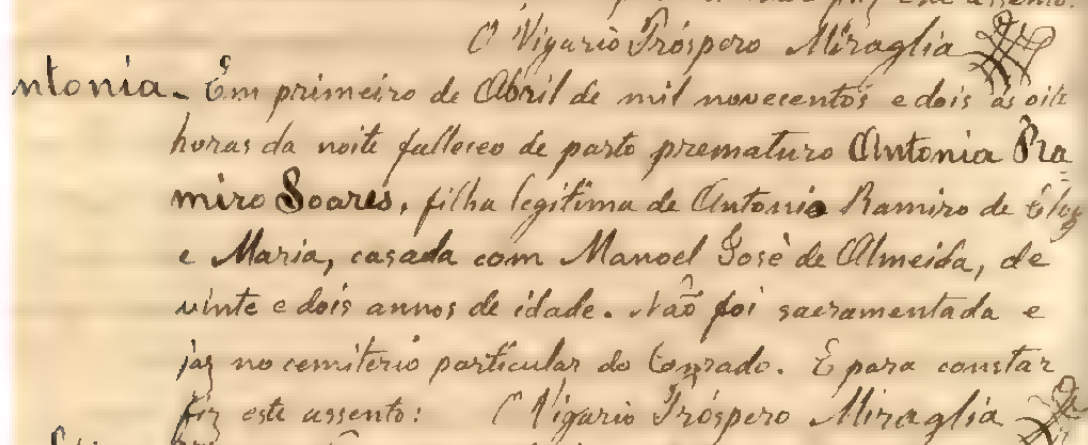 O Vigario Próspero Miraglia
ntonia - Em primeiro de Abril de mil novecentos e dois ás oito
horas da noite falleceo de parto prematuro Antonia Ra=
miro Soares, filha legitima de Antonio Ramiro de
e Maria, casada com Manoel José de Almeida, de
vinte e dois annos de idade. Não foi sacramentada e
jaz no cemiterio particular do Conrado. E para constar
fiz este assento: O Vigario Próspero Miraglia